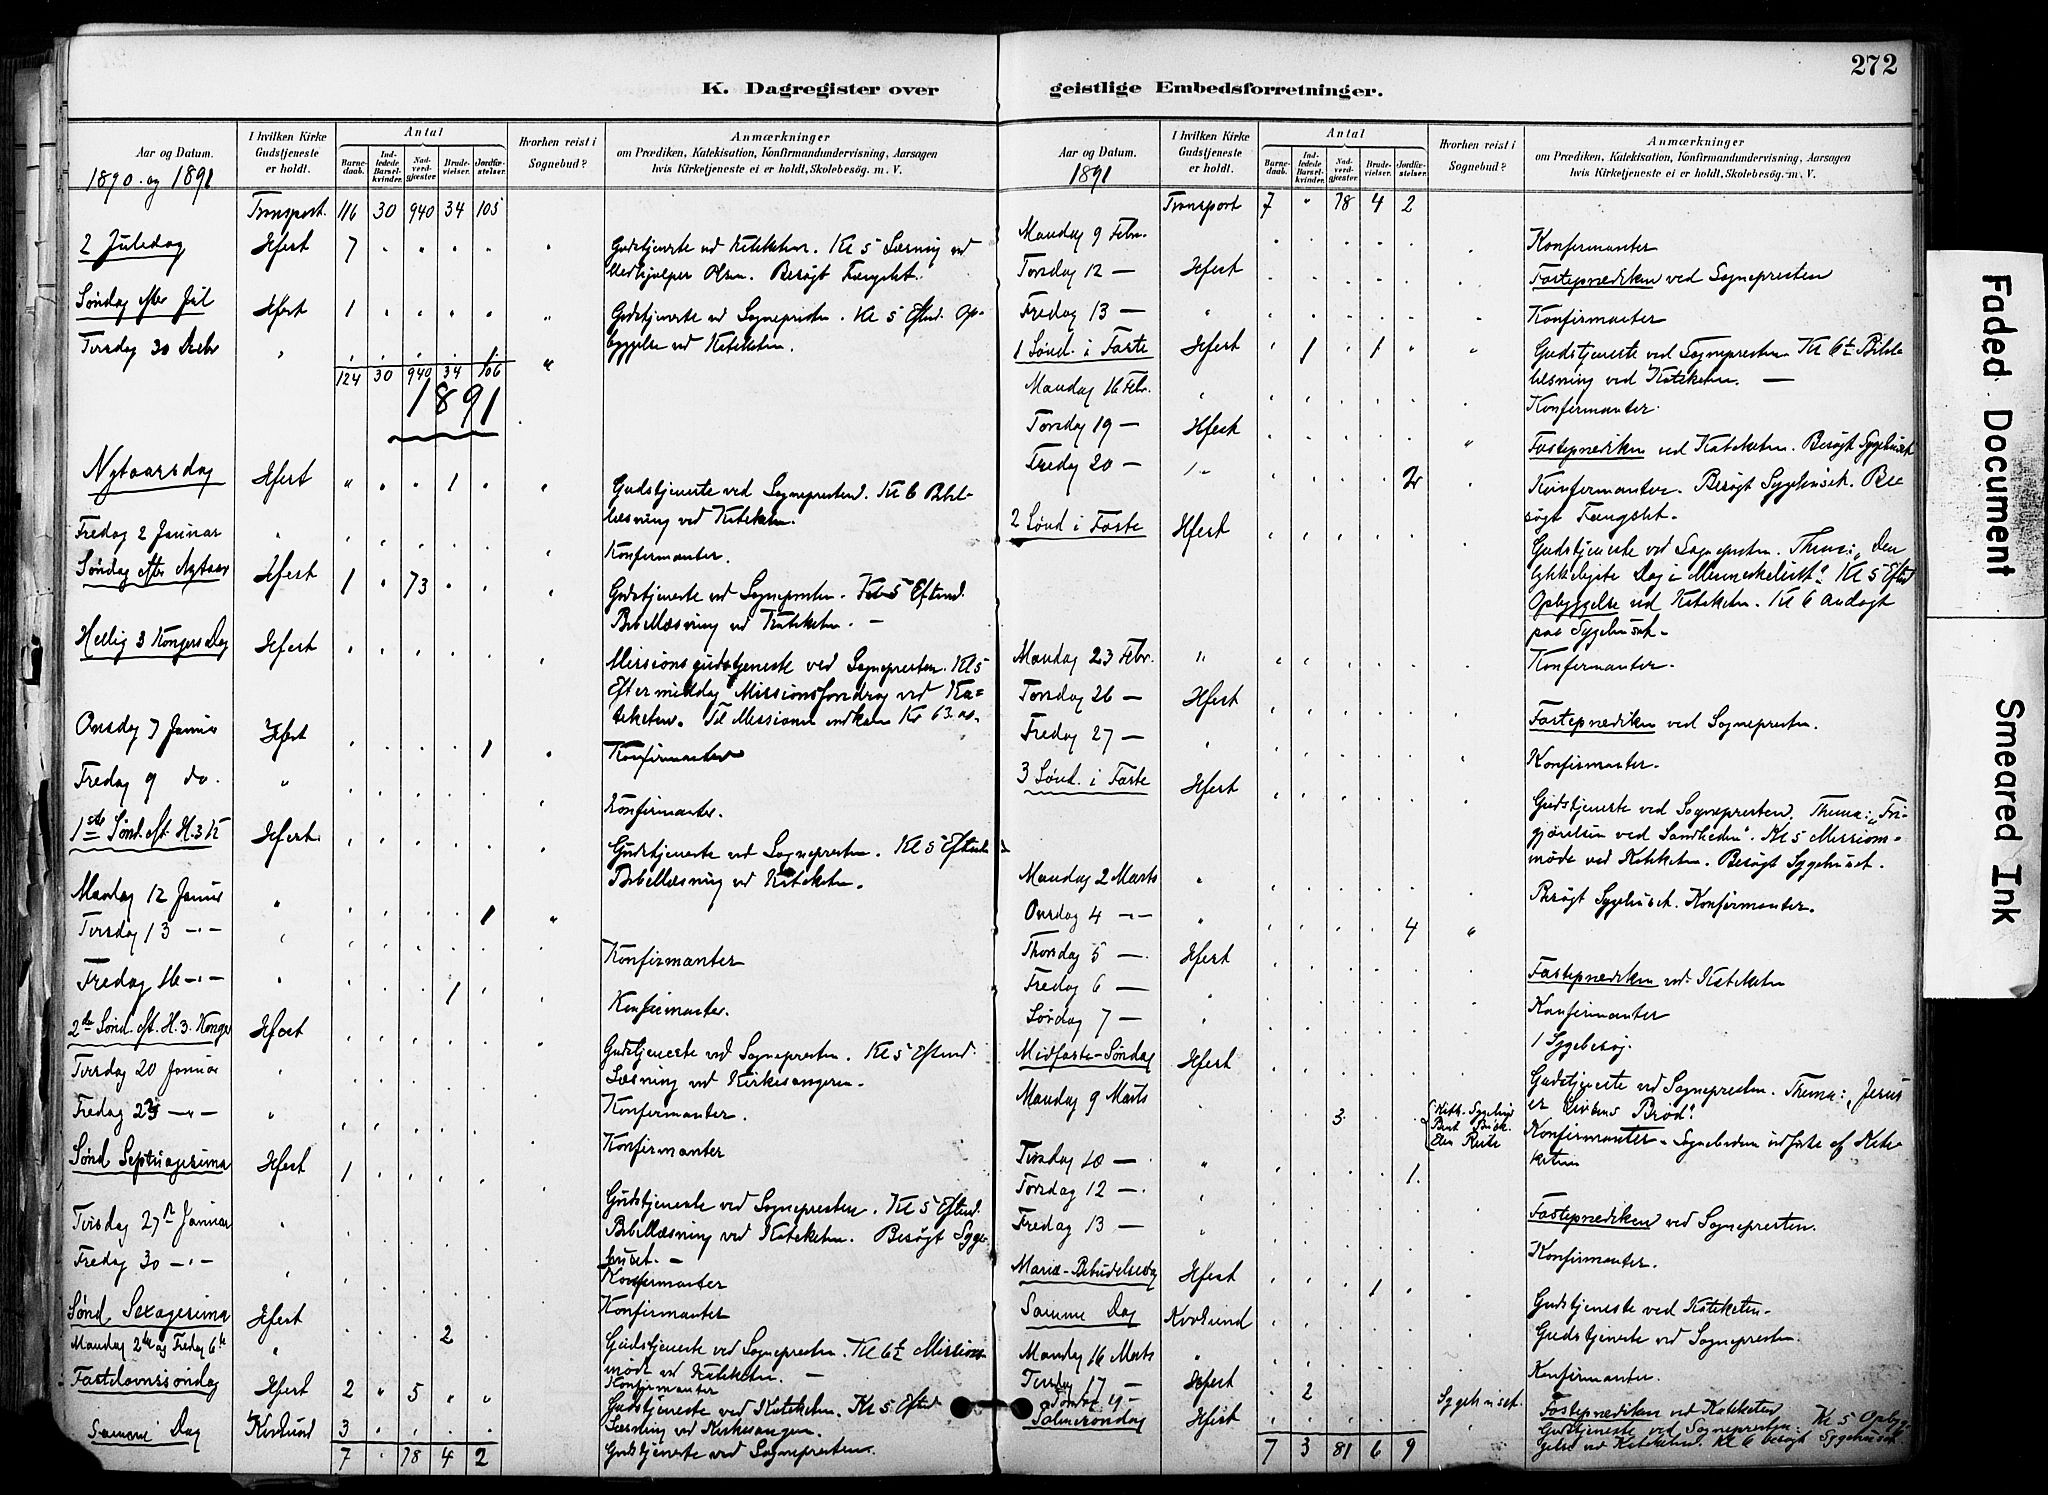 272
K. Dagregister over geistlige Embedsforretninger.
Aar og Datum.
1890 og 1891
I hvilken Kirke Gudstjeneste er holdt.
Antal
Barnedaab.
Indledede Barselkvinder.
Nadverdgjester
Brudevielser.
Jordfæstelser.
Hvorhen reist i Sognebud?
Anmærkninger
om Prædiken, Katekisation, Konfirmandundervisning, Aarsagen
hvis Kirketjeneste ei er holdt, Skolebesøg. m. V.
Transport. 116 30 940 34 105
2 Juledag Hfest 7 " " " " " Gudstjeneste ved Kateketen. Kl 5 Læsning ved
Medhjælper Olsen. Besøgt Fængslet.
Søndag efter Jul Hfest 1 " " " " " Gudstjeneste ved Sognepresten. Kl 5 Efterd. Op-
byggelse ved Kateketen.
Tirsdag 30 Decbr " 1 "
124 30 940 34 106
1891
Nytaarsdag Hfest " " " 1 " " Gudstjeneste ved Sognepresten. Kl 6 Bibel-
læsning ved Kateketen.
Fredag 2 Januar " Konfirmanter.
Søndag efter Nytaar Hfest 1 " 73 " " " Gudstjeneste ved Sognepresten. Kl 5 Efterd.
Bibellæsning ved Kateketen. —
Hellig 3 Kongers Dag Hfest Missionsgudstjeneste ved Sognepresten. Kl 5
Eftermiddag Missionsforedrag ved Ka-
teketen. Til Missionen indkom Kr 63.
Onsdag 7 Januar Hfest 1 " Konfirmanter
Fredag 9 do. " Konfirmanter.
1ste Sønd. eft. H. 3 K Hfest. Gudstjeneste ved Sognepresten. Kl 5 Efterd.
Bibellæsning ved Kateketen.
Mandag 12 Januar " 1 "
Tirsdag 13 —"— " Konfirmanter
Fredag 16 —"— " 1 Konfirmanter.
2den Sønd. eft. H. 3. Konger Hfest Gudstjeneste ved Sognepresten. Kl 5 Efterd.
Læsning ved Kirkesangeren.
Tirsdag 20 Januar " Konfirmanter.
Fredag 23 —"— " Konfirmanter
Sønd Septuagesima Hfest 1 Gudstjeneste ved Sognepresten. Kl 5 Efterd.
Bibellæsning ved Kateketen. Besøgt Syge-
huset. —
Tirsdag 27 Januar " Konfirmanter
Fredag 30 —"— " Konfirmanter
Sønd Sexagesima Hfest 2 Gudstjeneste ved Sognepresten. Kl 6½ Missions-
møde ved Kateketen. —
Mandag 2den og Fredag 6te " Konfirmanter
Fastelavnssøndag Hfest 2 " 5 " " Gudstjeneste ved Kateketen. Kl 5 Efterd
Læsning ved Kirkesangeren.
Samme Dag Kvalsund 3 Gudstjeneste ved Sognepresten.
7 " 78 4 2
Aar og Datum.
1891
I hvilken Kirke Gudstjeneste er holdt.
Antal
Barnedaab.
Indledede Barselkvinder.
Nadverdgjester
Brudevielser.
Jordfæstelser.
Hvorhen reist i Sognebud?
Anmærkninger
om Prædiken, Katekisation, Konfirmandundervisning, Aarsagen
hvis Kirketjeneste ei er holdt, Skolebesøg. m. V.
Transport 7 " 78 4 2
Mandag 9 Febr. Konfirmanter
Torsdag 12 — Hfest Fasteprædiken ved Sognepresten
Fredag 13 — " Konfirmanter
1 Sønd. i Faste Hfest " 1 " 1 " " Gudstjeneste ved Sognepresten Kl 6½ Bibel-
læsning ved Kateketen. —
Mandag 16 Febr. " Konfirmanter.
Torsdag 19 — Hfest " Fasteprædiken ved Kateketen. Besøgt Sygehuset
Fredag 20 — " 2 Konfirmanter. Besøgt Sygehuset. Be-
søgt Fængslet.
2 Sønd i Faste Hfest Gudstjeneste ved Sognepresten. Thema: "Den
lykkeligste Dag i Menneskelivet". Kl 5 Efterd
Opbyggelse ved Kateketen. Kl 6 Andagt
paa Sygehuset.
Mandag 23 Febr. " Konfirmanter.
Torsdag 26 — Hfest Fasteprædiken ved Sognepresten.
Fredag 27 — " Konfirmanter.
3 Sønd. i Faste Hfest Gudstjeneste ved Sognepresten. Thema: "Fri-
gjørelsen ved Sandheden". Kl 5 Missions-
møde ved Kateketen. Besøgt Sygehuset.
Mandag 2 Marts " Besøgt Sygehuset. Konfirmanter.
Onsdag 4 —"— " 4 "
Thorsdag 5 — Hfest Fasteprædiken ved Kateketen
Fredag 6 — " Konfirmanter
Lørdag 7 — " 1 Sygebesøg.
Midfaste-Søndag Hfest Gudstjeneste ved Sognepresten. Thema: "Jesus
er Livsens Brød".
Mandag 9 Marts " 3 Konfirmanter. Sognebuden udførte af Kate-
keten
Tirsdag 10 — " 1
Torsdag 12 — " Fasteprædiken ved Sognepresten.
Fredag 13 — " Konfirmanter.
Mariæ-Bebudelsesdag Hfest 1 Gudstjeneste ved Kateketen.
Samme Dag Kvalsund Gudstjeneste ved Sognepresten.
Mandag 16 Marts " Konfirmanter.
Tirsdag 17 — Hfest 2 Sygehuset.
Torsdag 19 — Fasteprædiken ved Kateketen
Palmesøndag Hfest Gudstjeneste ved Sognepresten. Kl 5 Opbyg-
gelse ved Kateketen. Kl 6 besøgt Sygehuset.
7 3 81 6 9
Faded Document
Smeared Ink